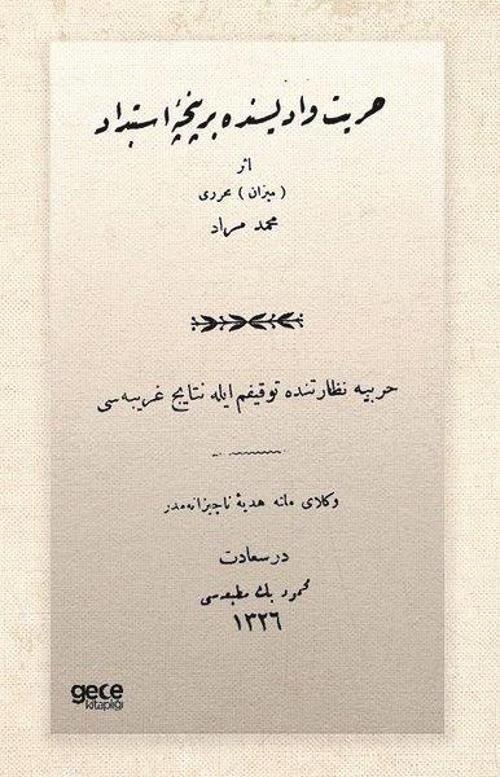 حریت وادیسنده بر پنچۀ استبداد
اثر
( میزان ) محرری
محمد مراد
حربیه نظارتنده توقیفم ایله نتایج غریبه‌سی
وکلای مانه هدیۀ ناچیزانه‌مدر
درسعادت
محمود بك مطبعه‌سی
١٣٢٦
gece
kitaplığı